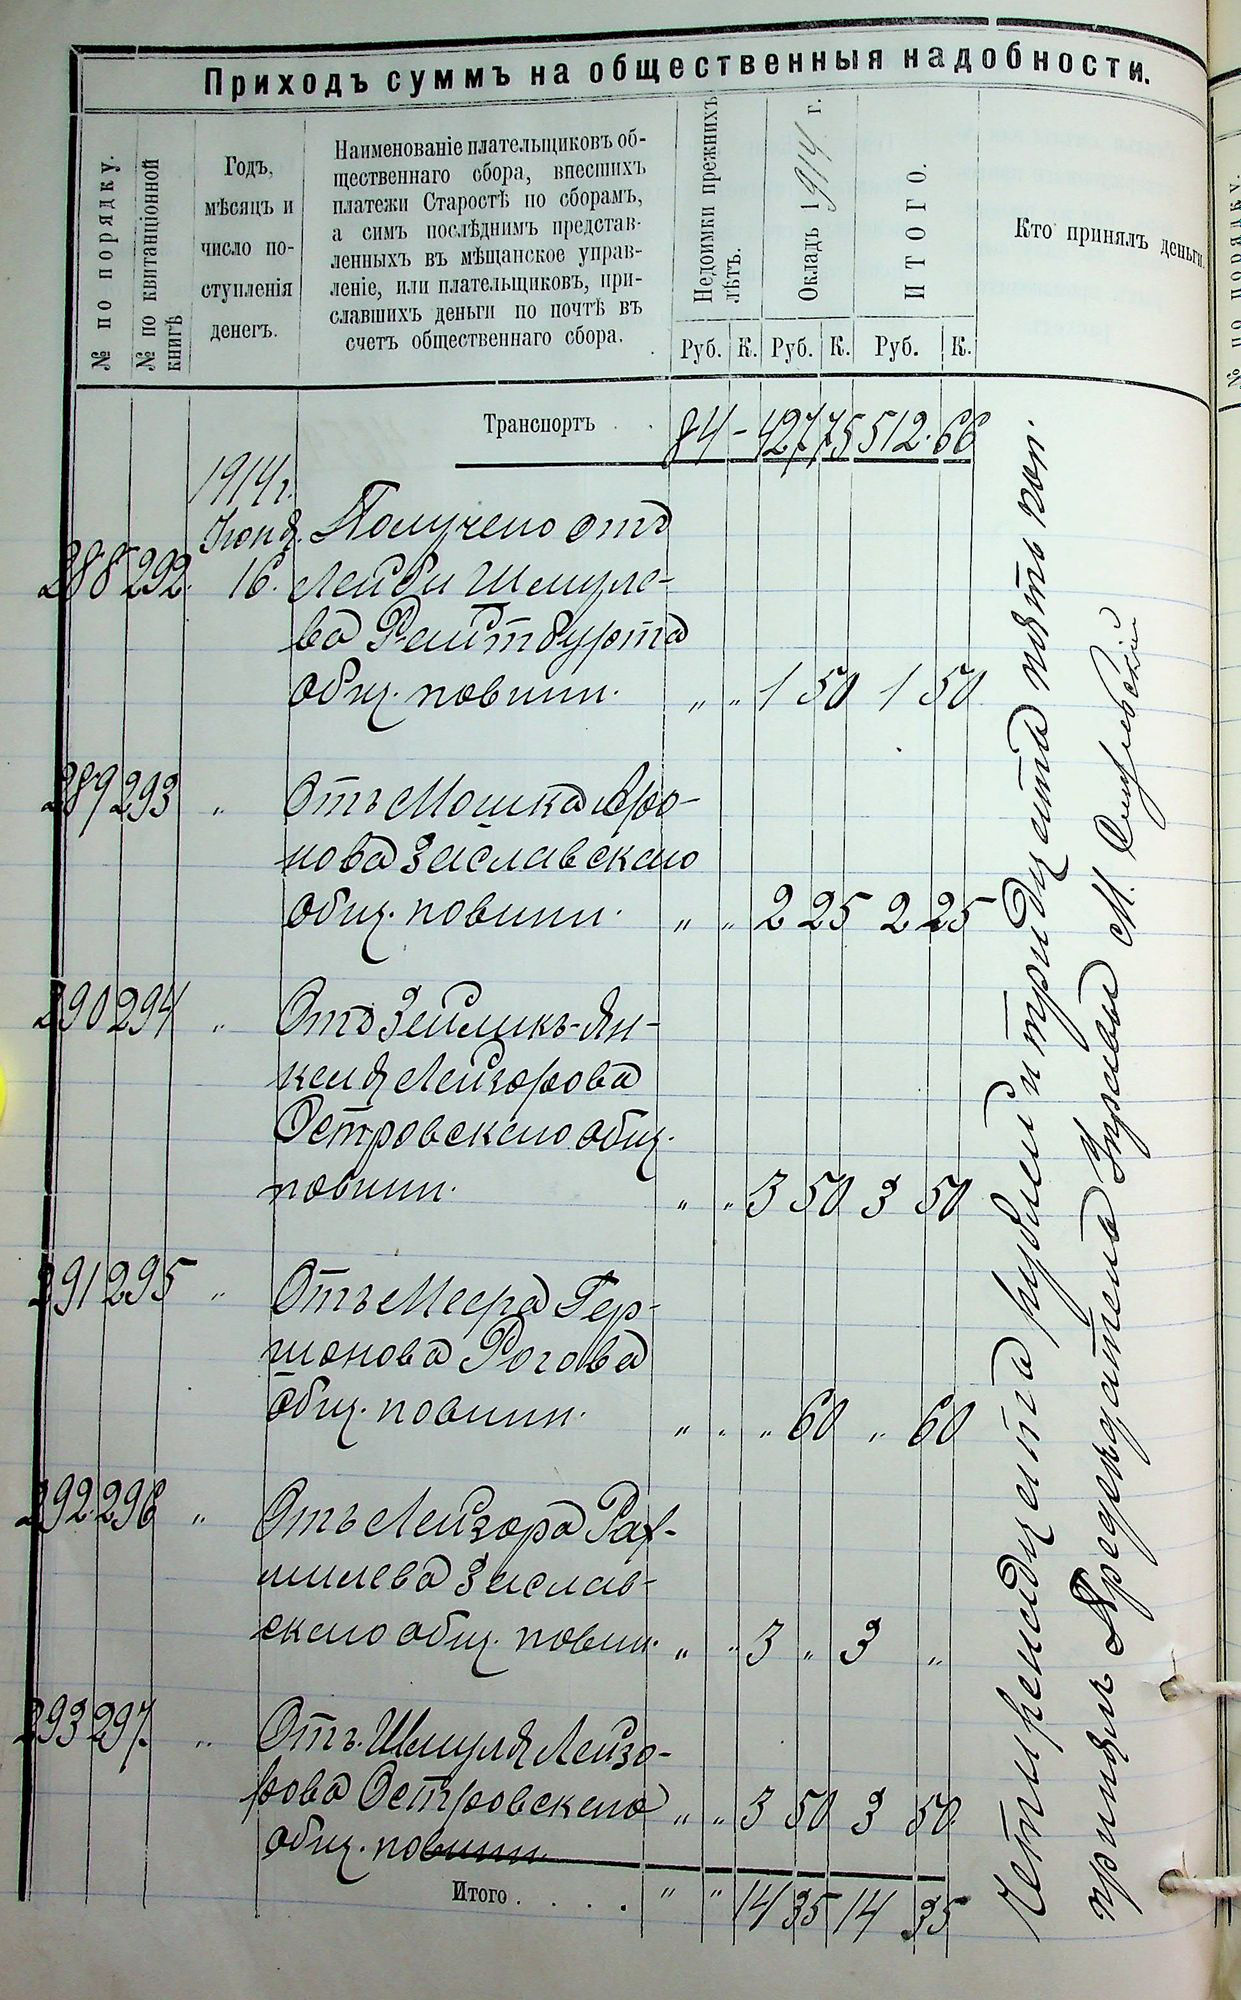 Приходъ суммъ на общественныя надобности.
№ по порядку.
№ по квитанціонной
книгѣ
Годъ,
мѣсяцъ и
число по-
ступленія
денегъ.
Наименованіе плательщиковъ об-
щественнаго сбора, внесшихъ
платежи Старостѣ по сборамъ,
а симъ послѣднимъ представ-
ленныхъ въ мѣщанское управ-
леніе, или плательщиковъ, при-
славшихъ деньги по почтѣ въ
счетъ общественнаго сбора.
Недоимки прежнихъ
лѣтъ.
Окладъ 1914 г.
ИТОГО.
Кто принялъ деньги.
Руб. К. Руб. К. Руб. К.
Транспортъ . . 84 – 427 75 512. 66
1914 г.
Іюня. Получено отъ
288 292. 16. Лейбы Шмуле-
ва Райтбурта
общ. повинн. „ „ 1 50 1 50
289 293 „ Отъ Мошка Аро-
нова Заславскаго
общ. повинн. „ „ 2 25 2 25
290 294 „ Отъ Зейликъ-Ян-
келя Лейзорова
Островскаго общ.
повинн. „ „ 3 50 3 50
291 295 „ Отъ Меера Гер-
шонова Рогова
общ. повинн. „ „ „ 60 „ 60
292. 296 „ Отъ Лейзора Рах-
милева Заслав-
скаго общ. повин. „ „ 3 „ 3 „
293 297. „ Отъ Шмуля Лейзо-
рова Островскаго „ „ 3 50 3 50.
общ. повинн.
Итого . . . . „ „ 14 35 14 35
Четырнадцать рублей и тридцать пять коп.
принялъ Предсѣдатель Управы М.